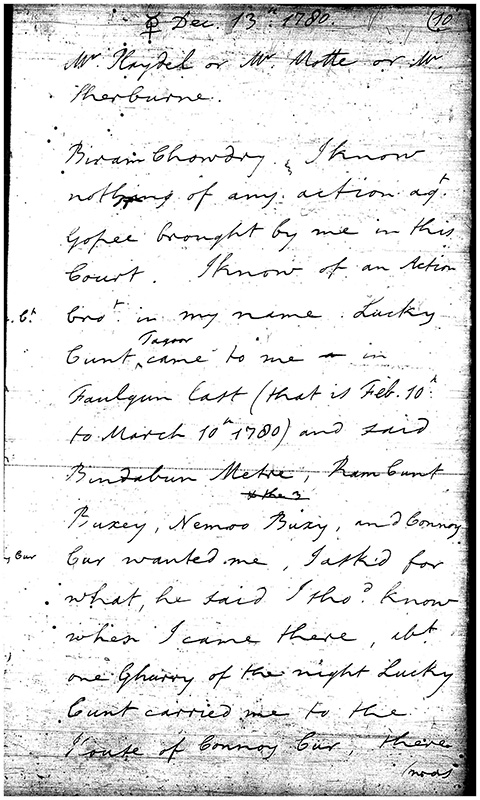 ☿ Dec. 13th 1780. (10
Mr. Playdel or Mr. Motte or Mr.
Sherburne.
Biram Chowdry. I know
nothing of any action agt.
Gopee brought by me in this
Court. I know of an Action
. Ct. brot. in my name. Lucky
Cunt Tagoor came to me in
Faulgun last (that is Feb. 10th.
to March 10th 1780) and said
Bindabun Metre, Ram Cunt
& the 3
Buxey, Nemoo Buxy, and Connoy
y Cur Cur wanted me, I ask'd for
what, he said I shod. know
when I came there, abt.
one Gharry of the night Lucky
Cunt carried me to the
House of Connoy Cur, there